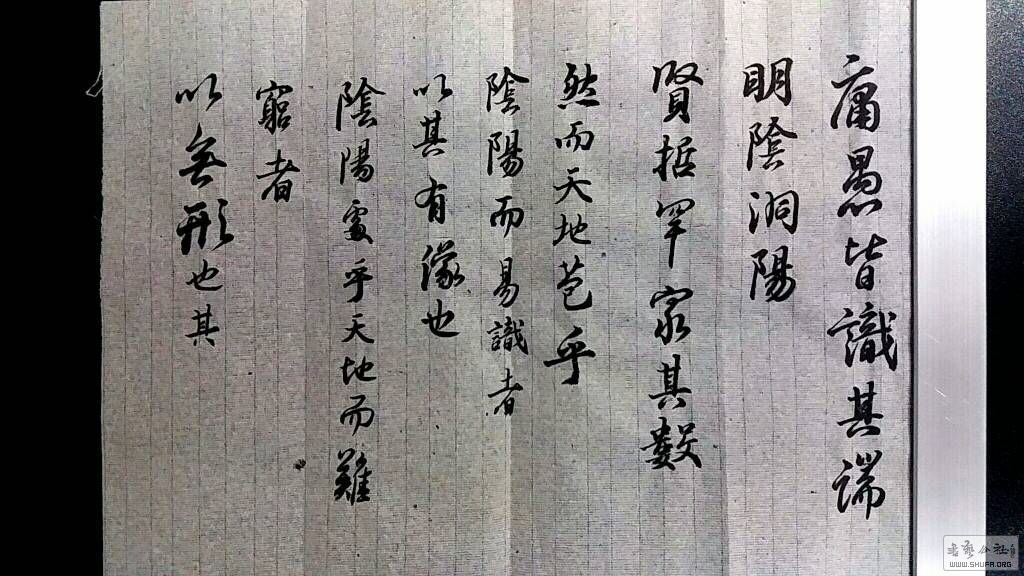 庸愚皆識其端
明陰洞陽
賢哲罕窮其數
然而天地苞乎
陰陽而易識者
以其有像也
陰陽處乎天地而難
窮者
以無形也其
WWW.SHUFA.ORG